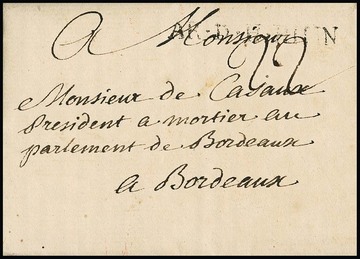 A Monsieur
22
Monsieur de Casaux
President a mortier au
parlement de Bordeaux
a Bordeaux